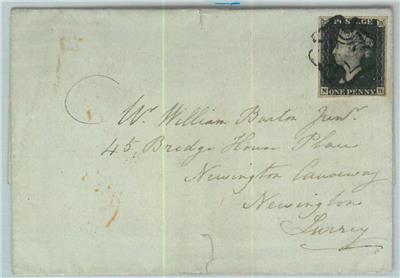 POSTAGE
ONE PENNY
Mr. William Barton Junr.
45 Bridge House Place
Newington Causeway
Newington
Surrey